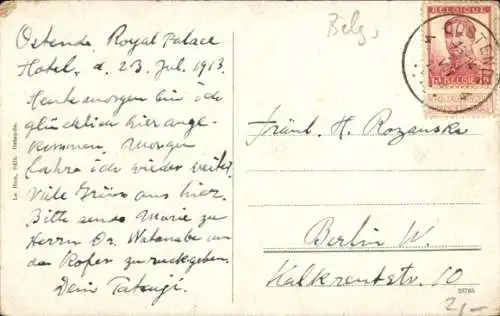 Ostende, Royal Palace
Hotel, d. 23. Jul. 1913.
Heute morgen bin ich
glücklich hier ange-
kommen. Morgen
fahre ich wieder weiter.
Viele Grüsse aus hier.
Bitte sende Marie zu
Herrn Dr. Watanabe um
den Kofer zurückgeben.
Dein Tatsuji.
Belg.
BELGIQUE
BELGIË
OOSTENDE
Fräul. H. Rozanska
Berlin W.
Kalkreutstr. 10
Le Bon, édit. Ostende.
2,-